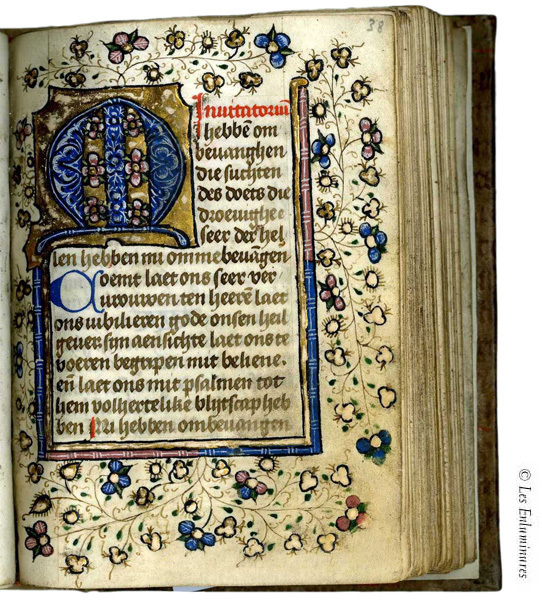 38
Inuitatoriū
M hebbē om
beuanghen
die suchten
des doets die
droeuighe
seer der hel
len hebben mi ommebeuāgen
Coemt laet ons seer ver
urouwen ten heerē laet
ons iubilieren gode onsen heil
geuer syn aensichte laet ons te
voeren begripen mit beliene.
eñ laet ons mit psalmen tot
hem volhertelike blijtscap heb
ben Mi hebben ombeuangen
© Les Enluminures